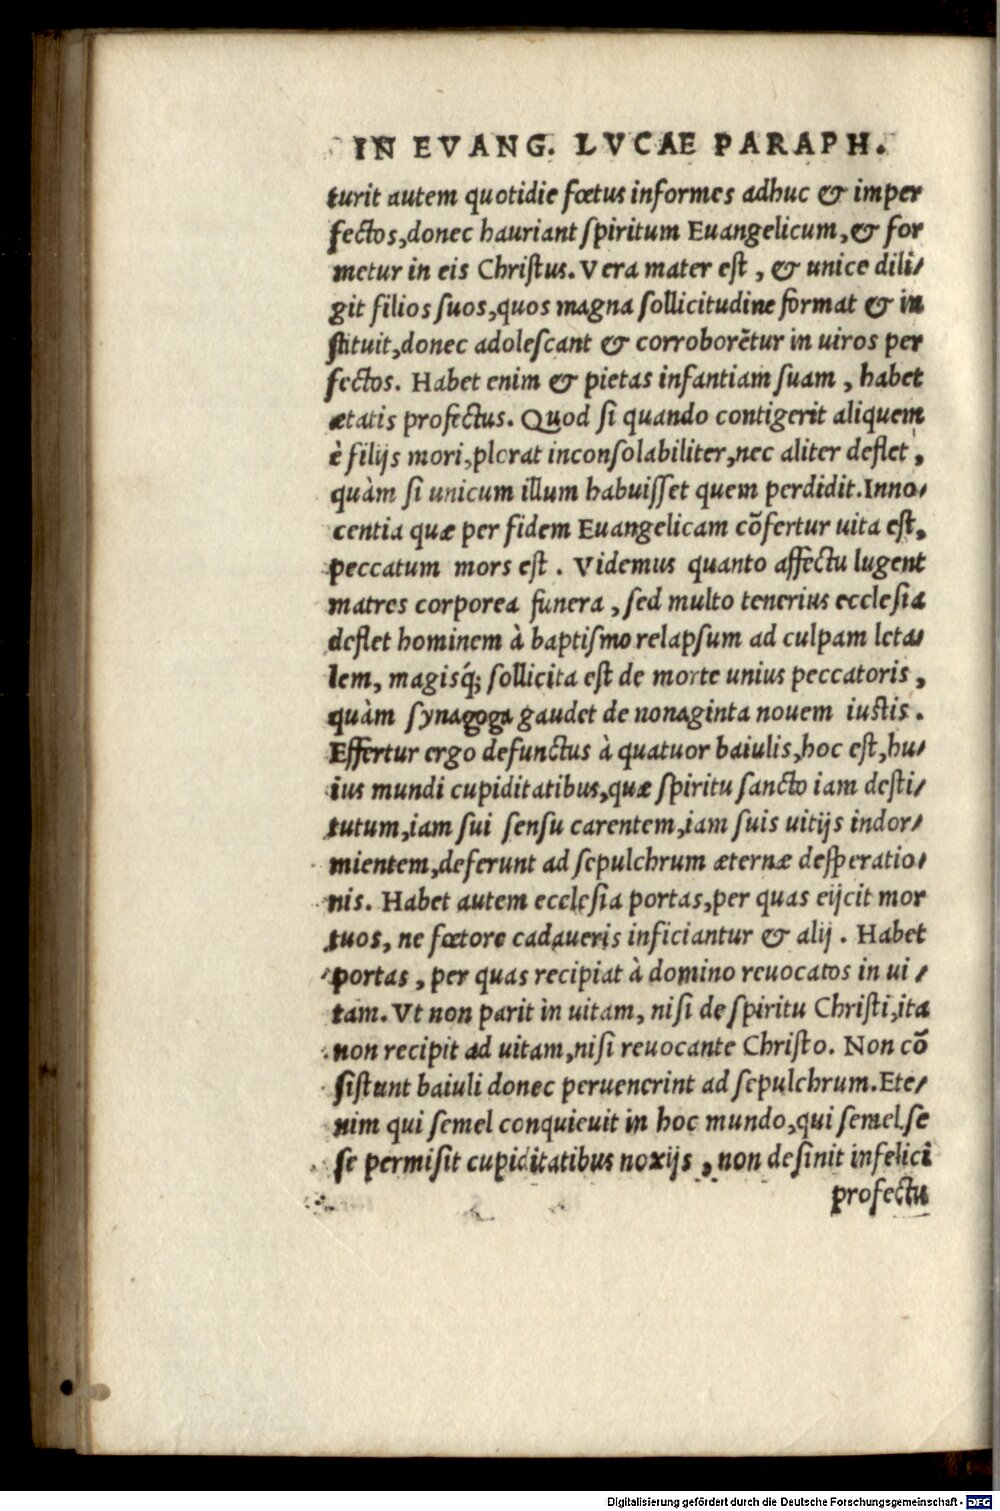 IN EVANG. LVCAE PARAPH.
turit autem quotidie fœtus informes adhuc & imper
fectos, donec hauriant ſpiritum Euangelicum, & for
metur in eis Chriſtus. Vera mater eſt, & unice dili/
git filios ſuos, quos magna ſollicitudine format & in
ſtituit, donec adoleſcant & corroborẽtur in uiros per
fectos. Habet enim & pietas infantiam ſuam, habet
ætatis profectus. Quod ſi quando contigerit aliquem
è filijs mori, plorat inconſolabiliter, nec aliter deflet,
quàm ſi unicum illum habuiſſet quem perdidit. Inno/
centia quæ per fidem Euangelicam cõfertur uita eſt,
peccatum mors eſt. Videmus quanto affectu lugent
matres corporea funera, ſed multo tenerius eccleſia
deflet hominem à baptiſmo relapſum ad culpam leta/
lem, magisq́; ſollicita eſt de morte unius peccatoris,
quàm ſynagoga gaudet de nonaginta nouem iustis.
Effertur ergo defunctus à quatuor baiulis, hoc eſt, hu/
ius mundi cupiditatibus, quæ ſpiritu ſancto iam deſti/
tutum, iam ſui ſenſu carentem, iam ſuis uitijs indor/
mientem, deferunt ad ſepulchrum æternæ deſperatio/
nis. Habet autem eccleſia portas, per quas eijcit mor
tuos, ne fœtore cadaueris inficiantur & alij. Habet
portas, per quas recipiat à domino reuocatos in ui/
tam. Vt non parit in uitam, niſi de ſpiritu Chriſti, ita
non recipit ad uitam, niſi reuocante Chriſto. Non cõ
ſiſtunt baiuli donec peruenerint ad ſepulchrum. Ete/
nim qui ſemel conquieuit in hoc mundo, qui ſemel ſe
ſe permiſit cupiditatibus noxijs, non deſinit infelici
profectu
Digitalisierung gefördert durch die Deutsche Forschungsgemeinschaft - DFG